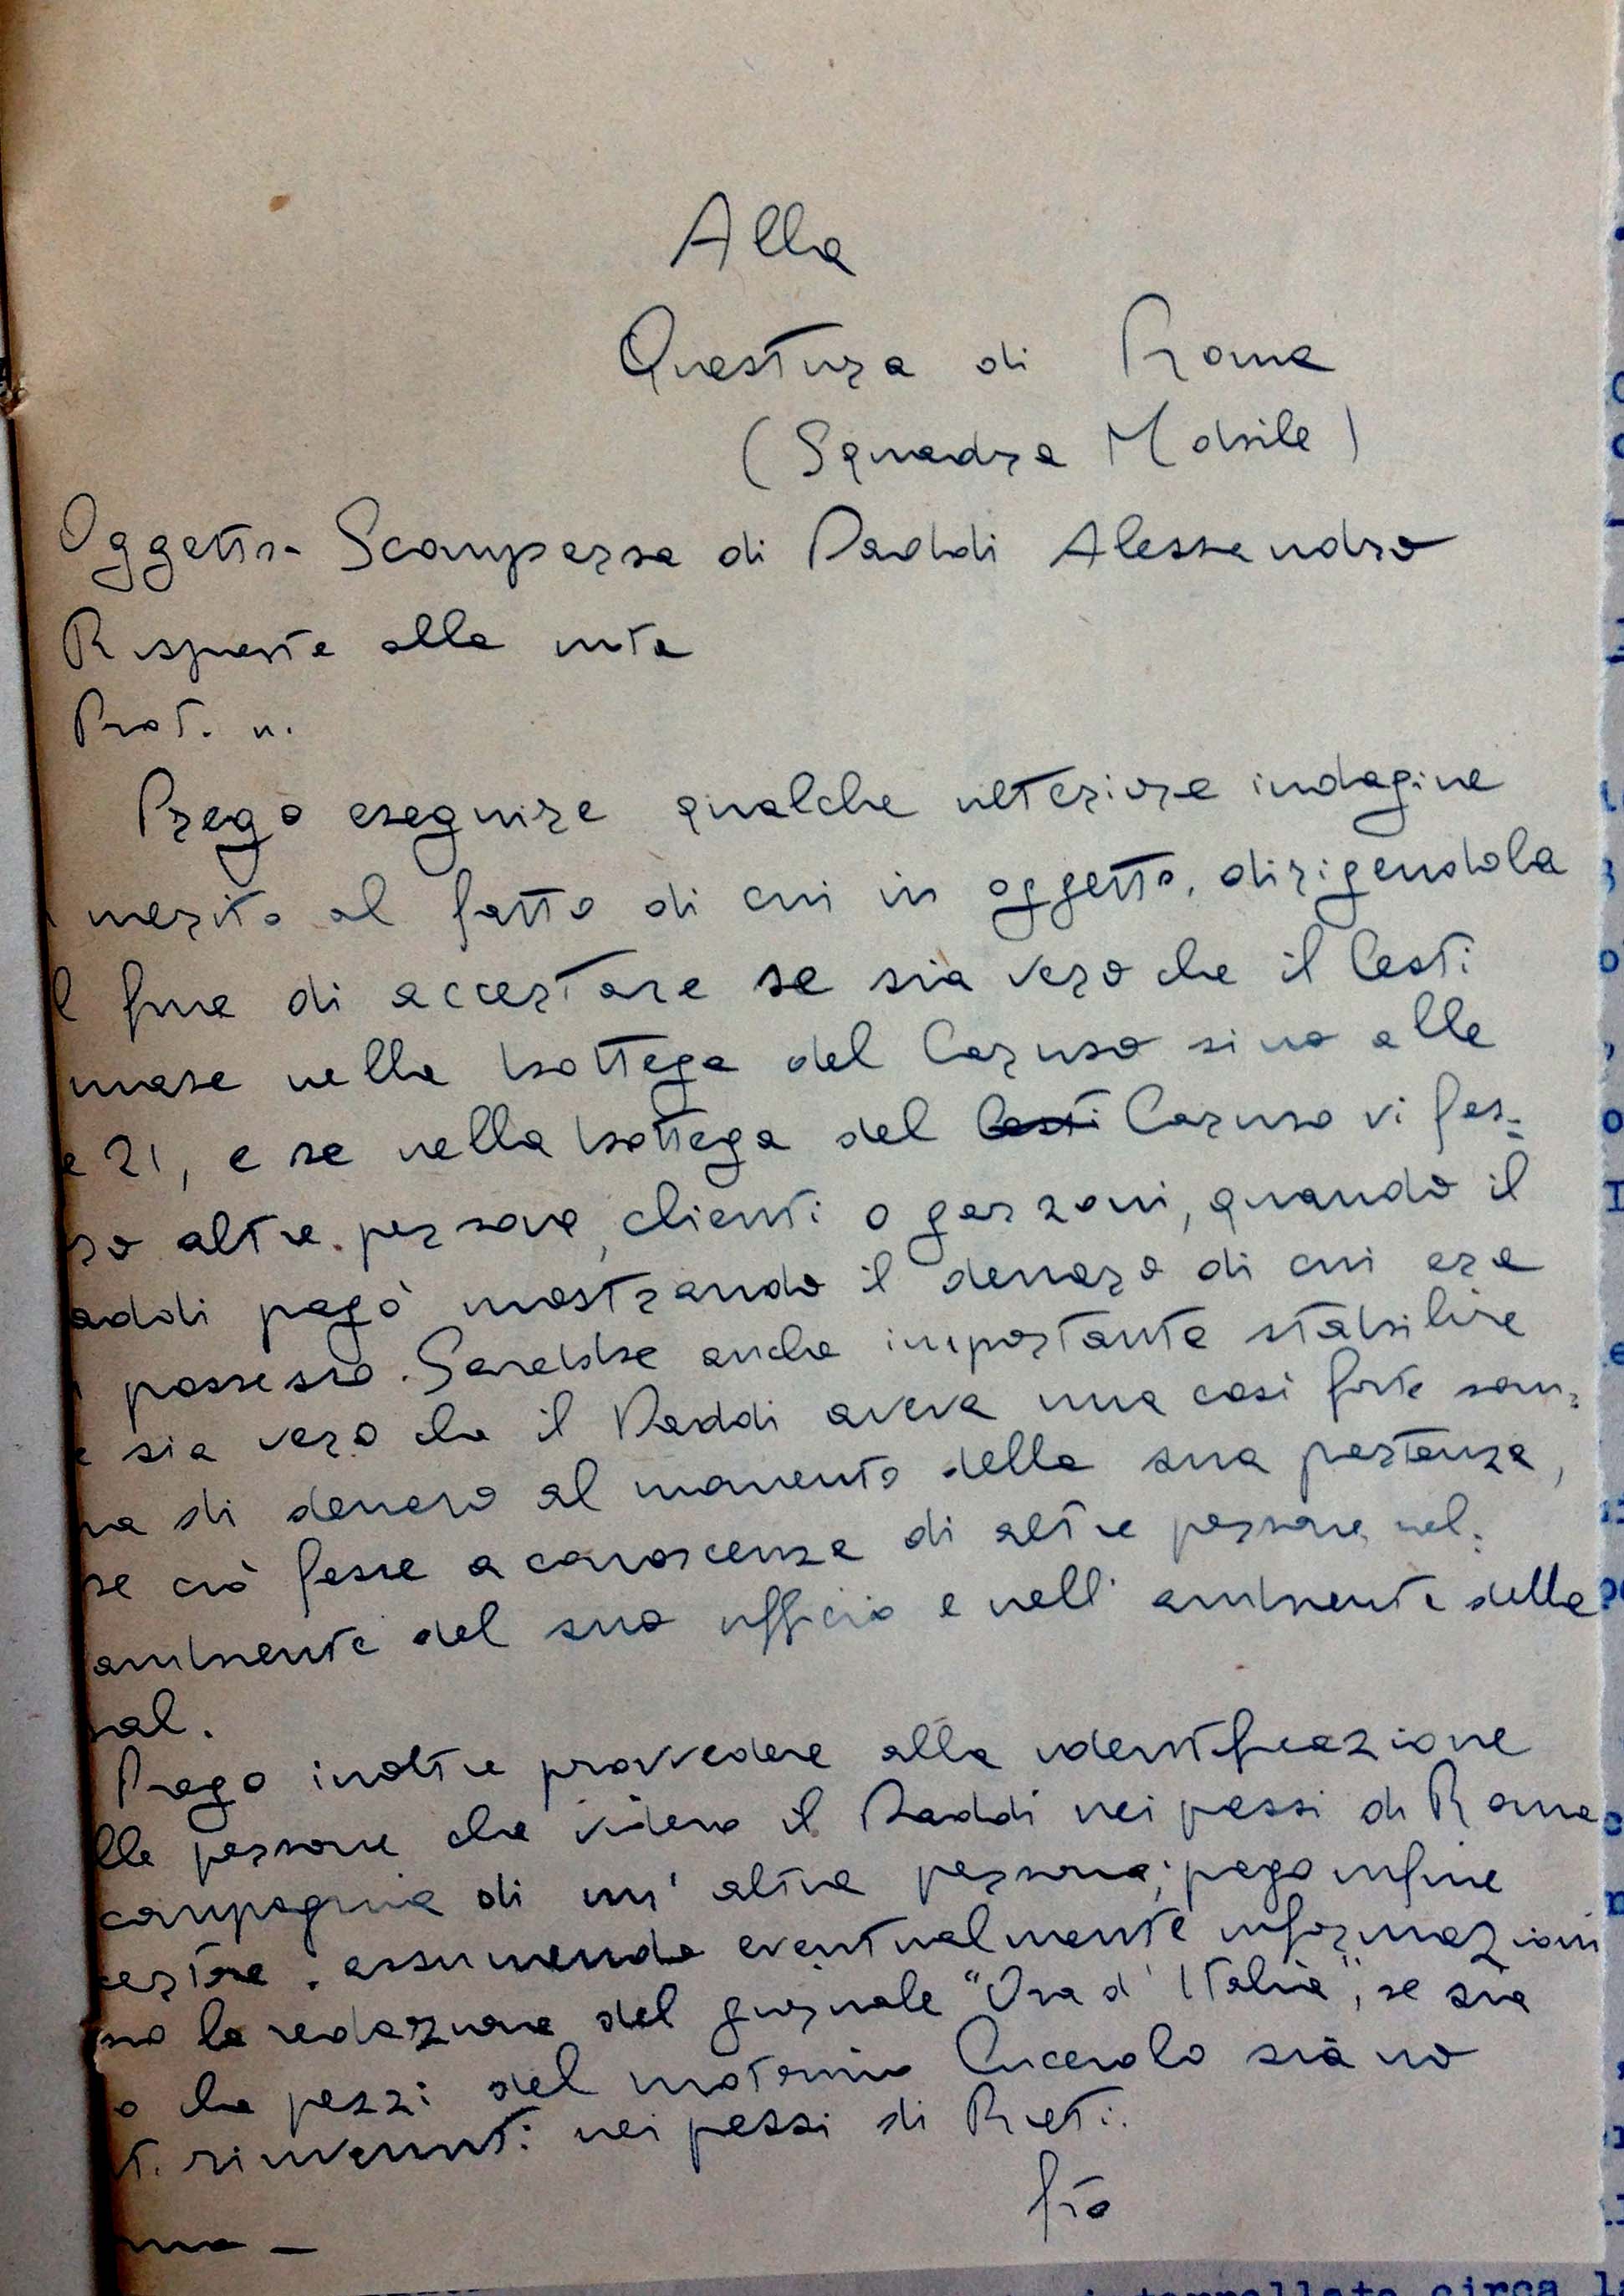 Alla
Questura di Roma
(Squadra Mobile)
Oggetto- Scomparsa di Daddi Alessandro
Risposta alla nota
Prot. n.
Prego eseguire qualche ulteriore indagine
merito al fatto di cui in oggetto, dirigendola
l fine di accertare se sia vero che il Cesti
mase nella bottega del Caruso sino alle
e 21, e se nella bottega del Cesti Caruso vi fos=
ro altre persone, clienti o garzoni, quando il
addi pagò mostrando il denaro di cui era
possesso. Sarebbe anche importante stabilire
e sia vero che il Daddi aveva una così forte som=
ma di denaro al momento della sua partenza,
se ciò fosse a conoscenza di altre persone nel=
ambiente del suo ufficio e nell'ambiente della
sal.
Prego inoltre provvedere alla identificazione
lle persone che videro il Daddi nei pressi di Roma
compagnia di un'altra persona; prego infine
certare assumendo eventualmente informazioni
so la redazione del giornale "Ora d'Italia", se sia
o che pezzi del motorino Cucciolo siano
t. rinvenuti nei pressi di Rieti.
fto
ma -
i circa l